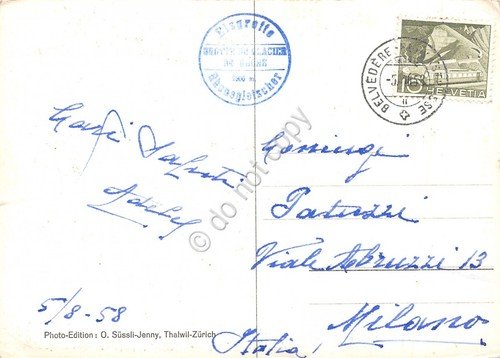 Eisgrotte
GROTTE DE GLACIER
DU RHONE
Rhonegletscher
BELVÉDÈRE
10 HELVETIA
Cari Saluti
5/8-58
Patuzzi
Viale Abruzzi 13
Milano
Italia
Photo-Edition: O. Süssli-Jenny, Thalwil-Zürich
do not copy